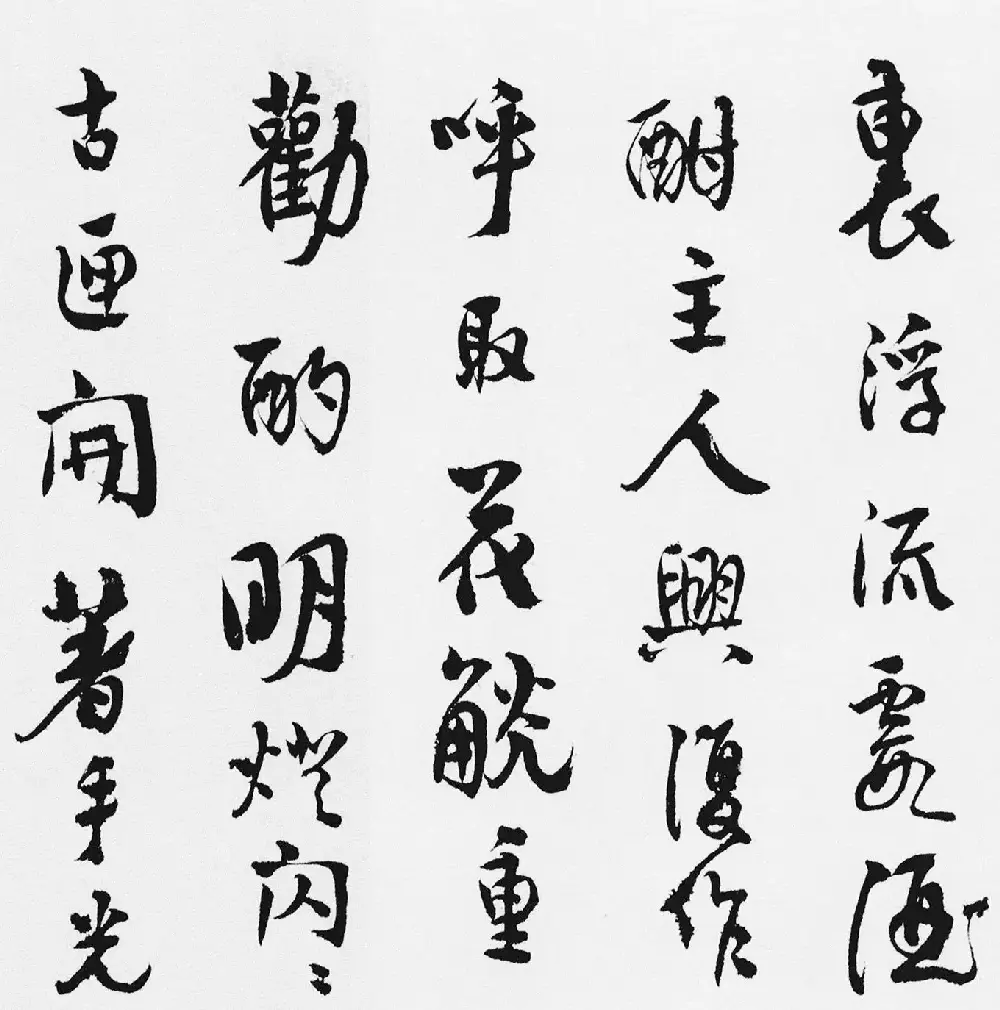 裏浮流霞酒
酣主人興復作
呼取花觥重
勸酌明燈閃〻
古匣開著手光